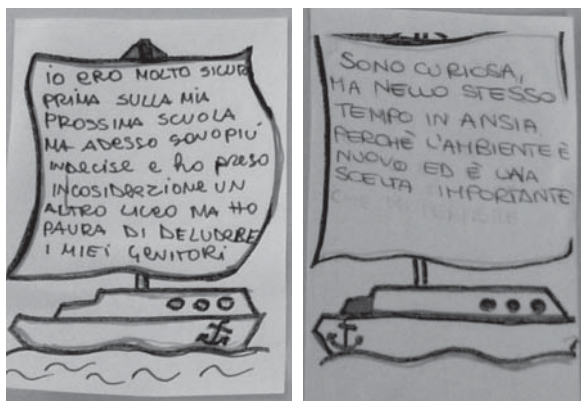 IO ERO MOLTO SICURA
PRIMA SULLA MIA
PROSSIMA SCUOLA
MA ADESSO SONO PIÙ
INDECISE E HO PRESO
INCOSIDERZIONE UN
ALTRO LICEO MA HO
PAURA DI DELUDERE
I MIEI GENITORI
SONO CURIOSA,
MA NELLO STESSO
TEMPO IN ANSIA
PERCHÈ L'AMBIENTE È
NUOVO ED È UNA
SCELTA IMPORTANTE